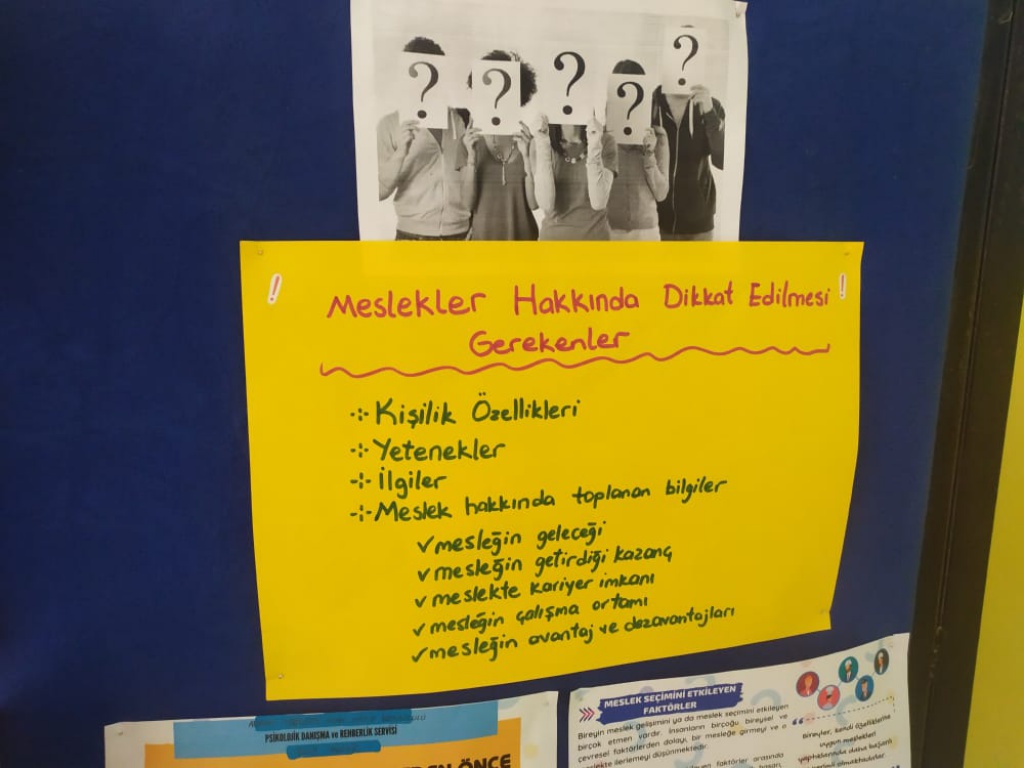 ? ? ? ? ?
! Meslekler Hakkında Dikkat Edilmesi !
Gerekenler
Kişilik Özellikleri
Yetenekler
İlgiler
Meslek hakkında toplanan bilgiler
✓ mesleğin geleceği
✓ mesleğin getirdiği kazanç
✓ meslekte kariyer imkanı
✓ mesleğin çalışma ortamı
✓ mesleğin avantaj ve dezavantajları
PSİKOLOJİK DANIŞMA ve REHBERLİK SERVİSİ
ÖNCE
MESLEK SEÇİMİNİ ETKİLEYEN
FAKTÖRLER
Bireyin meslek gelişimini ya da meslek seçimini etkileyen
birçok etmen vardır. İnsanların birçoğu bireysel ve
çevresel faktörlerden dolayı, bir mesleğe girmeyi ve o
meslekte ilerlemeyi düşünmektedir.
faktörler arasında
Bireyler, kendi özelliklerine
uygun meslekleri
yaptıklarında daha başarılı